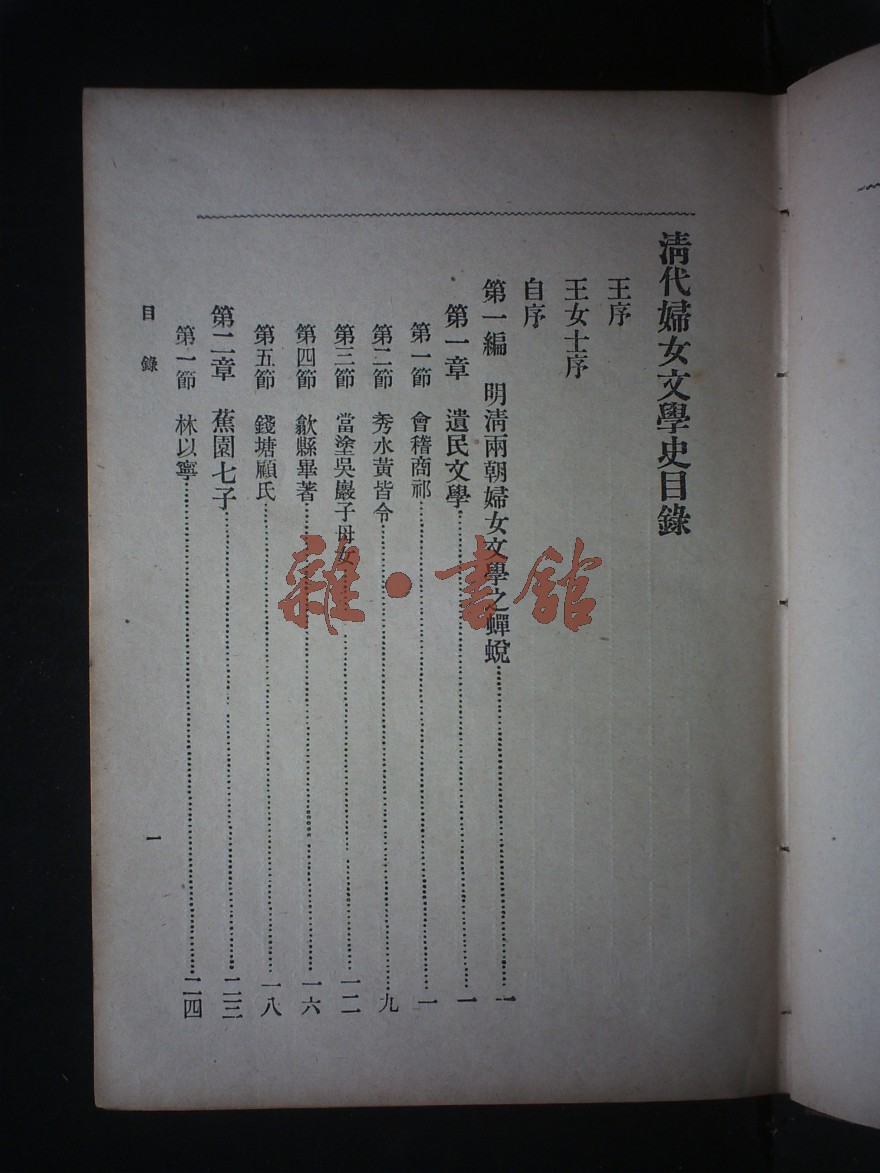 清代婦女文學史目錄
王序
王女士序
自序
第一編 明清兩朝婦女文學之蟬蛻……一
第一章 遺民文學……一
第一節 會稽商祁……一
第二節 秀水黃皆令……九
第三節 當塗吳巖子母女……一二
第四節 歙縣畢著……一六
第五節 錢塘顧氏……一八
第二章 蕉園七子……二三
第一節 林以寧……二四
目錄
一
雜·書館